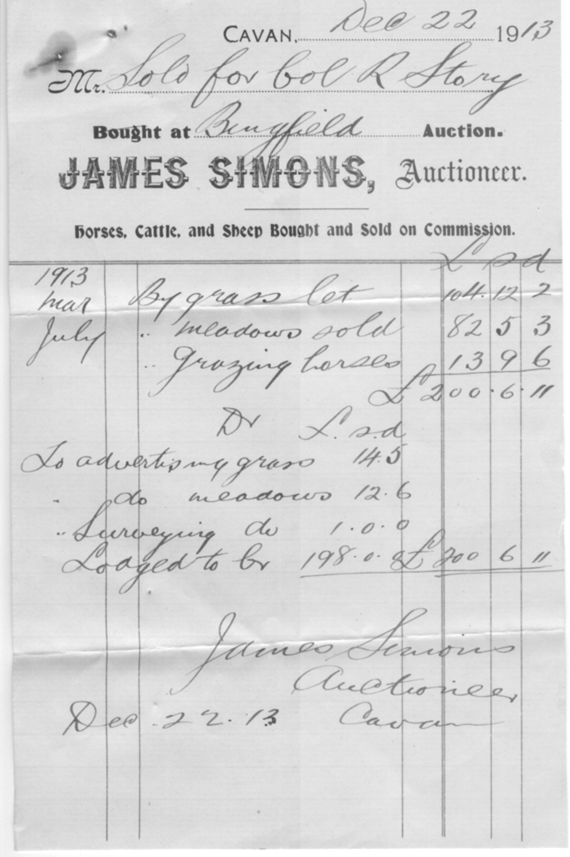 CAVAN, Dec 22 1913
Mr. Sold for Col R Story
Bought at Bingfield Auction.
JAMES SIMONS, Auctioneer.
Horses, Cattle, and Sheep Bought and Sold on Commission.
£ s d
1913
Mar By grass let 104.12 2
July " meadows sold 82 5 3
" Grazing horses 13 9 6
£ 200.6.11
Dr £.s.d
To advertising grass 14.5
" do meadows 12.6
" Surveying do 1.0.0
Lodged to Cr 198.0.0 £ 200 6 11
James Simons
Auctioneer
Dec. 22. 13 Cavan